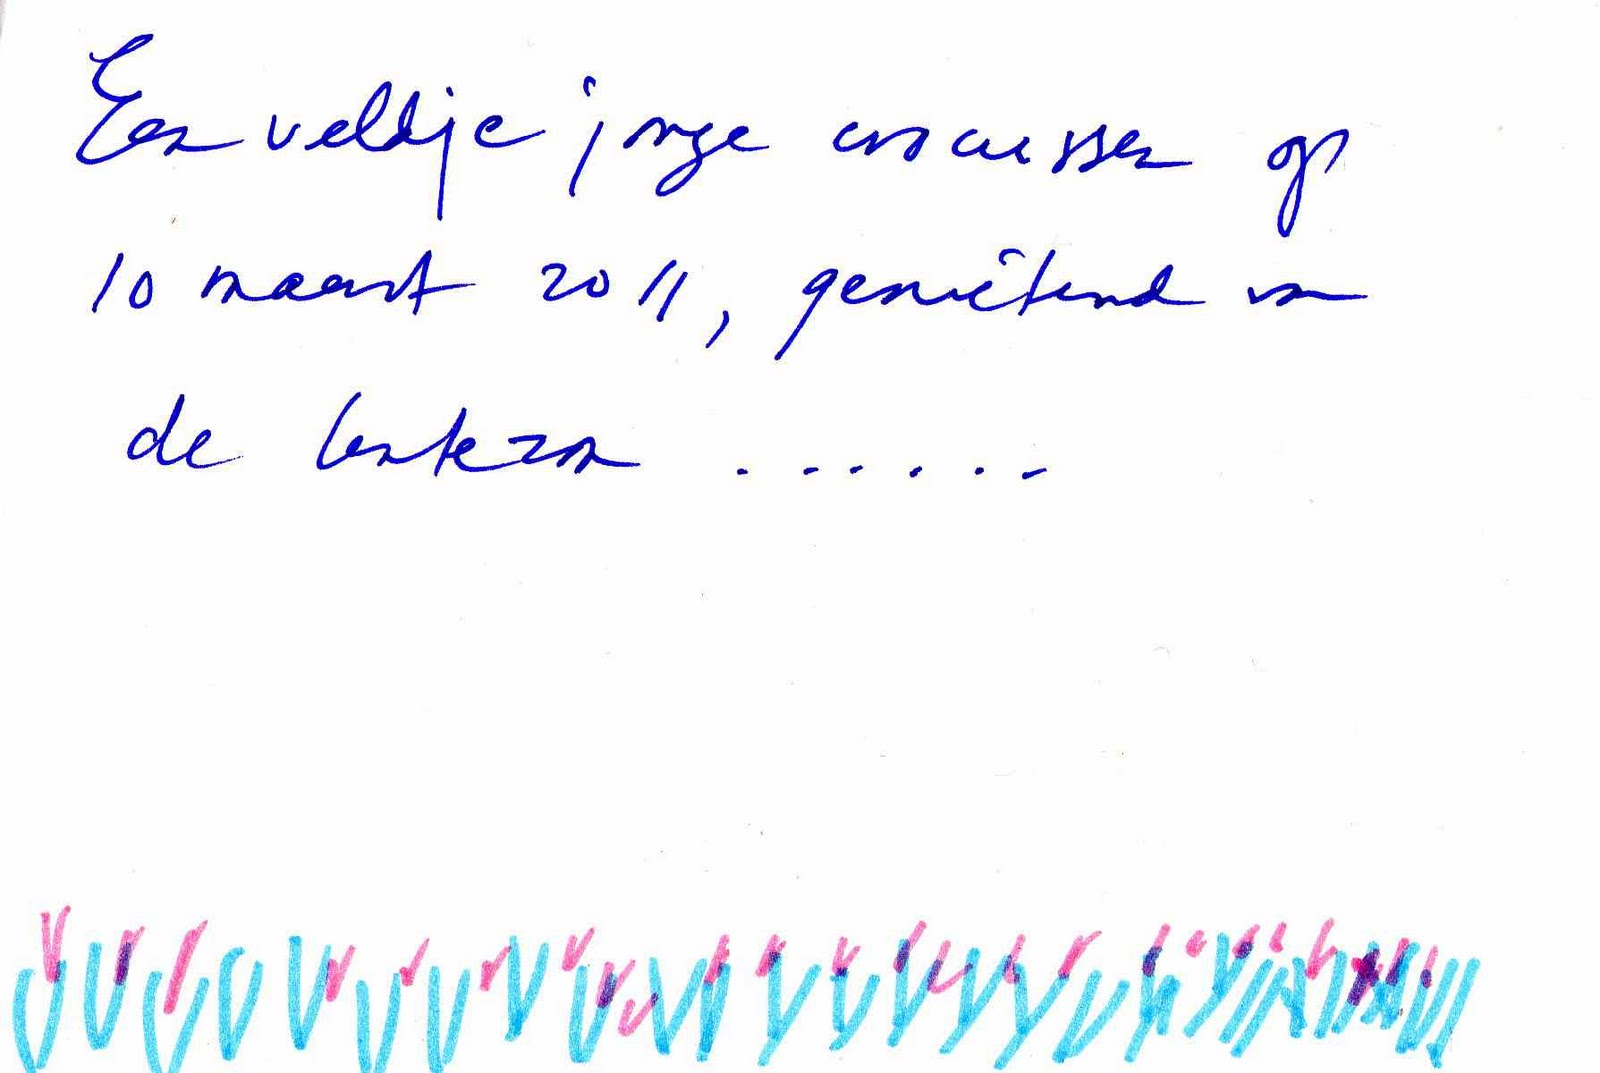 Een veldje jonge crocussen op
10 maart 2011, genietend van
de lentezon ......